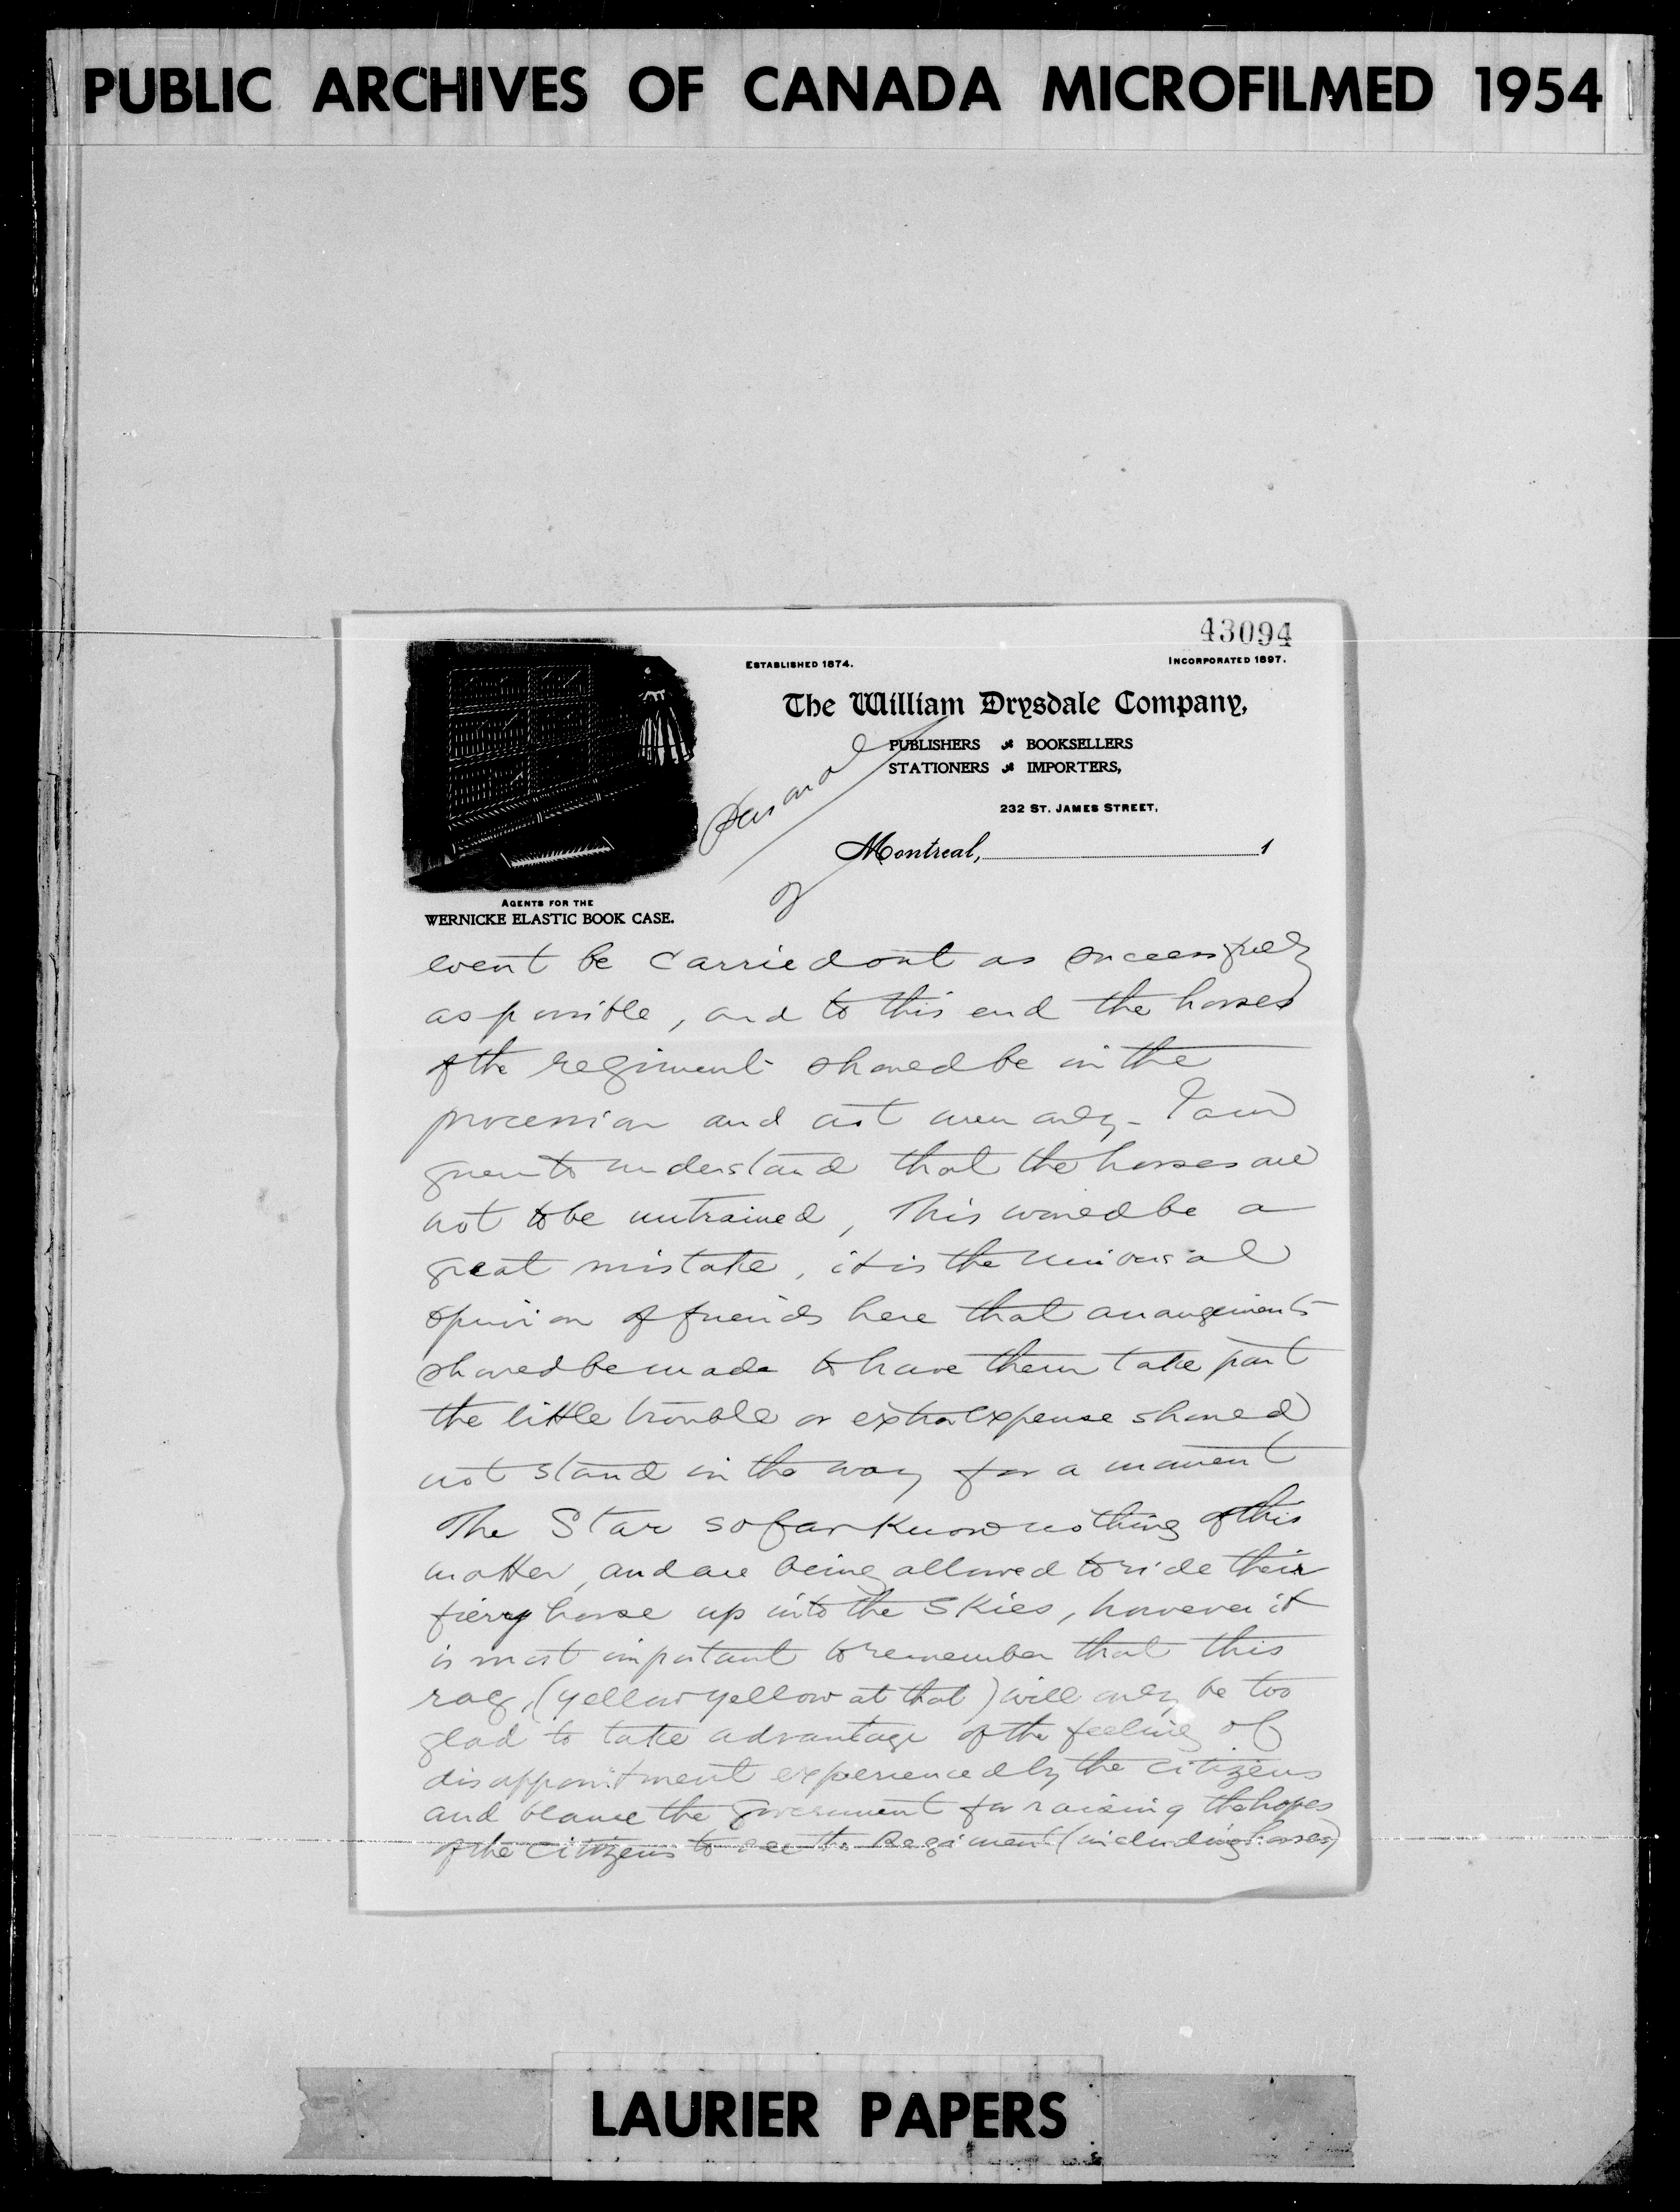 PUBLIC ARCHIVES OF CANADA MICROFILMED 1954
43094
ESTABLISHED 1874.
INCORPORATED 1897.
The William Drysdale Company,
PUBLISHERS BOOKSELLERS
STATIONERS IMPORTERS,
232 ST. JAMES STREET,
Personal
Montreal, 1
2
AGENTS FOR THE
WERNICKE ELASTIC BOOK CASE.
event be carried out as successfully
as possible, and to this end the horses
of the regiment should be in the
procession and not men only - I am
given to understand that the horses are
not to be untrained, This would be a
great mistake, it is the universal
opinion of friends here that arrangements
should be made to have them take part
the little trouble or extra expense should
not stand in the way for a moment
The Star so far know nothing of this
matter, and are being allowed to ride their
fiery horse up into the skies, however it
is most important to remember that this
rag, (yellow yellow at that) will only be too
glad to take advantage of the feeling of
disappointment experienced by the citizens
and blame the Government for raising the hopes
of the citizens to see the Regiment (including horses)
LAURIER PAPERS